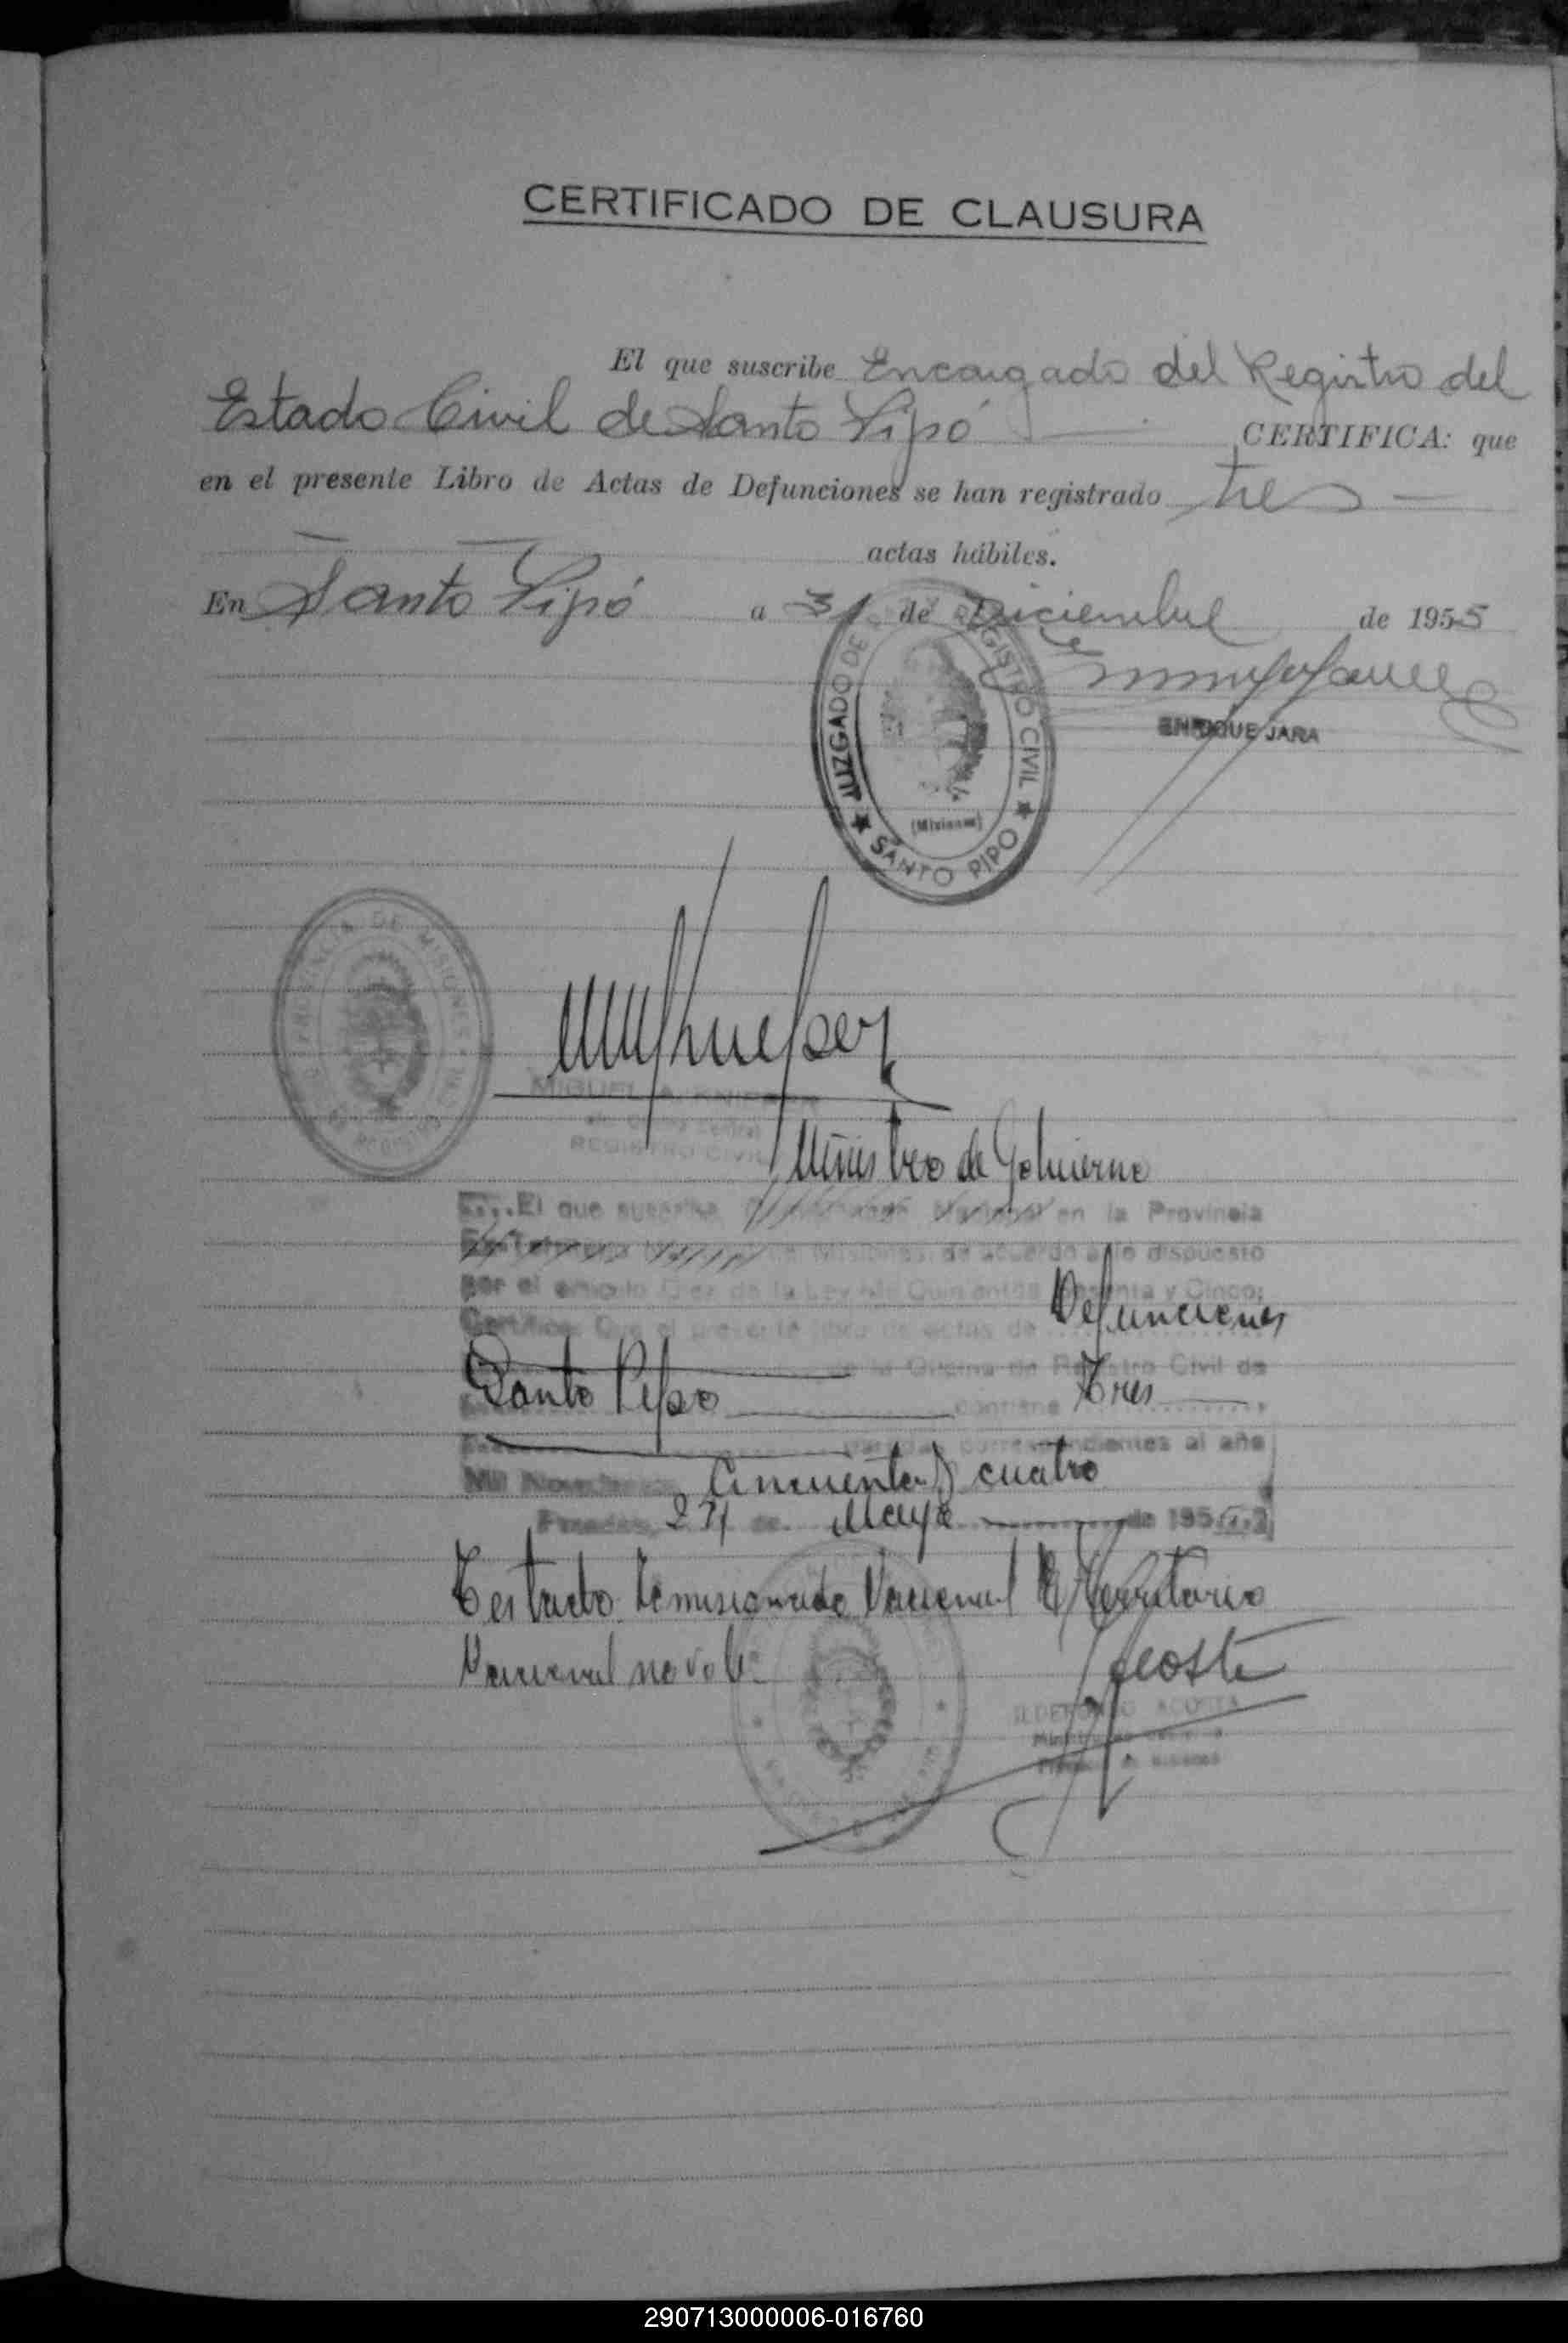 CERTIFICADO DE CLAUSURA
El que suscribe Encargado del Registro del
Estado Civil de Santo Pipó CERTIFICA: que
en el presente Libro de Actas de Defunciones se han registrado tres
actas hábiles.
En Santo Pipó a 31 de Diciembre de 1955
ENRIQUE JARA
JUZGADO DE REGISTRO CIVIL
(Misiones)
SANTO PIPO
DE MISIONES
MIGUEL A.
REGISTRO CIVIL
Ministro de Gobierno
El que suscribe en la Provincia
de Misiones, de acuerdo a lo dispuesto
por el artículo Diez de la Ley Mil Quinientos Sesenta y Cinco;
Certifica: Que el presente libro de actas de Defunciones
de la Oficina de Registro Civil de
Santo Pipo contiene Tres
partidas correspondientes al año
Mil Novecientos Cincuenta y cuatro
Posadas, de Mayo de 195
Testado Comisionado Nacional Territorio
Nacional no vale
Acosta
ILDEFONSO ACOSTA